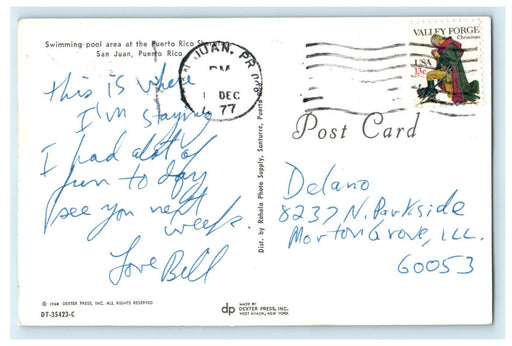 Swimming pool area at the Puerto Rico
San Juan, Puerto Rico
This is where
I'm staying
I had alot of
fun to day
see you next
week.
Love Bill
© 1968 DEXTER PRESS, INC. ALL RIGHTS RESERVED
DT-35423-C
JUAN, PR
PM
1 DEC
77
Dist. by Rahola Photo Supply, Santurce, Puerto
dp MADE BY
DEXTER PRESS, INC.
WEST NYACK, NEW YORK
VALLEY FORGE
Christmas
USA
13c
Post Card
Delano
8237 N. Parkside
Morton Grove, ILL.
60053